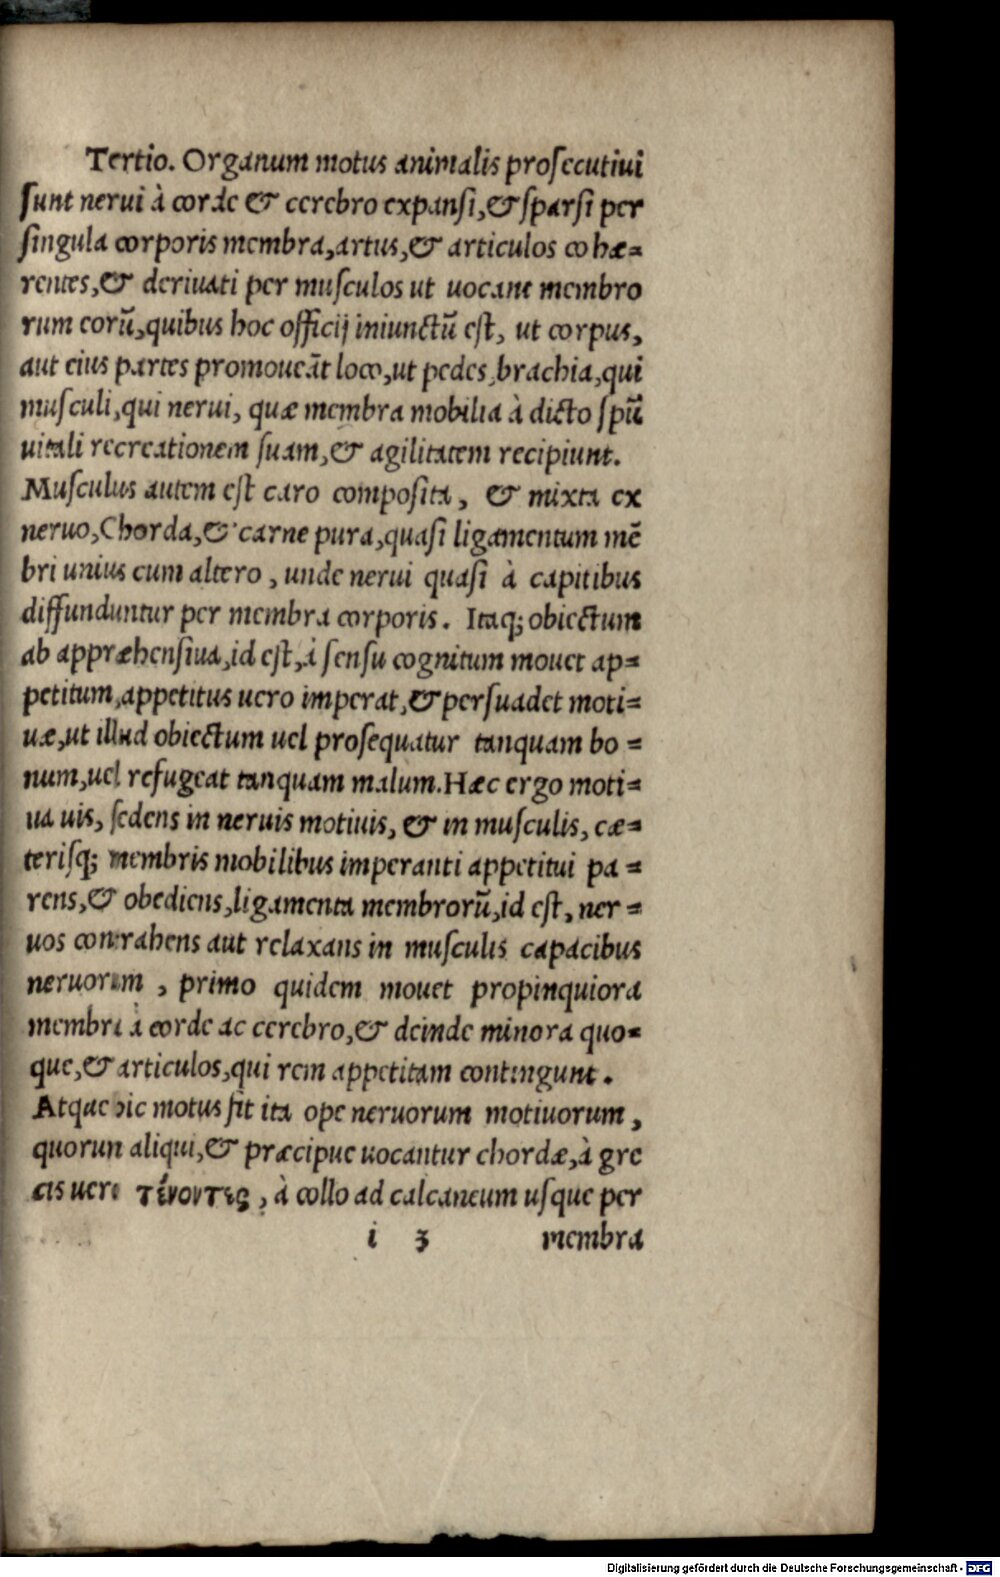 Tertio. Organum motus animalis proſecutiui
ſunt nerui à corde & cerebro expanſi,& ſparſi per
ſingula corporis membra,artus,& articulos cohæ=
rentes,& deriuati per muſculos ut uocant membro
rum eorũ,quibus hoc officij iniunctũ eſt, ut corpus,
aut eius partes promoueãt loco,ut pedes,brachia,qui
muſculi,qui nerui, quæ membra mobilia à dicto ſpũ
uitali recreationem ſuam,& agilitatem recipiunt.
Muſculus autem eſt caro compoſita, & mixta ex
neruo,Chorda,& carne pura,quaſi ligamentum mẽ
bri unius cum altero, unde nerui quaſi à capitibus
diffunduntur per membra corporis. Itaq; obiectum
ab appræhenſiua,id eſt,à ſenſu cognitum mouet ap=
petitum,appetitus uero imperat,& perſuadet moti=
uæ,ut illud obiectum uel proſequatur tanquam bo=
num,uel refugeat tanquam malum.Hæc ergo moti=
ua uis, ſedens in neruis motiuis, & in muſculis, cæ=
teriſq; membris mobilibus imperanti appetitui pa=
rens,& obediens,ligamenta membrorũ,id eſt, ner=
uos contrahens aut relaxans in muſculis capacibus
neruorum, primo quidem mouet propinquiora
membra à corde ac cerebro,& deinde minora quo=
que,& articulos,qui rem appetitam contingunt.
Atque hic motus fit ita ope neruorum motiuorum,
quorun aliqui,& præcipue uocantur chordæ,à gre
cis uero τένοντες, à collo ad calcaneum uſque per
i 3 membra
Digitalisierung gefördert durch die Deutsche Forschungsgemeinschaft - DFG